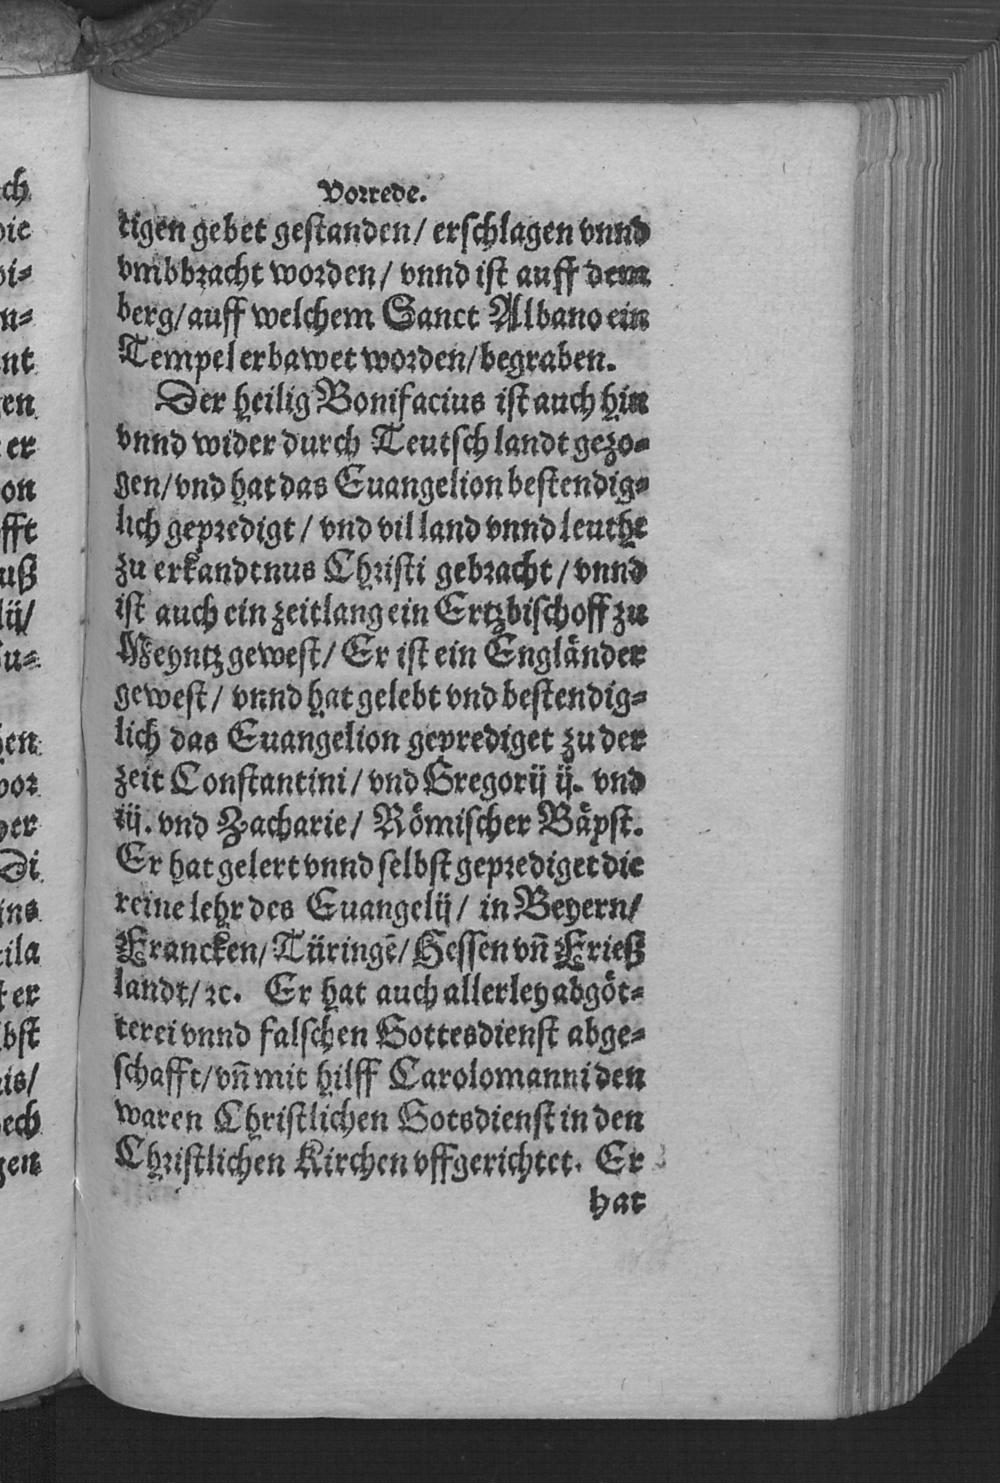 Vorrede.
tigen gebet gestanden/ erschlagen vnnd
vmbbracht worden/ vnnd ist auff dem
berg/ auff welchem Sanct Albano ein
Tempel erbawet worden/ begraben.
Der heilig Bonifacius ist auch hin
vnnd wider durch Teutsch landt gezo-
gen/ vnd hat das Euangelion bestendig-
lich gepredigt/ vnd vil land vnnd leuthe
zu erkandtnus Christi gebracht/ vnnd
ist auch ein zeitlang ein Ertzbischoff zu
Meyntz gewest/ Er ist ein Engländer
gewest/ vnnd hat gelebt vnd bestendig-
lich das Euangelion geprediget zu der
zeit Constantini/ vnd Gregorij ij. vnd
iij. vnd Zacharie/ Römischer Bäpst.
Er hat gelert vnnd selbst geprediget die
reine lehr des Euangelij/ in Beyern/
Francken/ Türingē/ Hessen vñ Frieß
landt/ ꝛc. Er hat auch allerley abgöt-
terei vnnd falschen Gottesdienst abge-
schafft/ vñ mit hilff Carolomanni den
waren Christlichen Gotsdienst in den
Christlichen Kirchen vffgerichtet. Er
hat